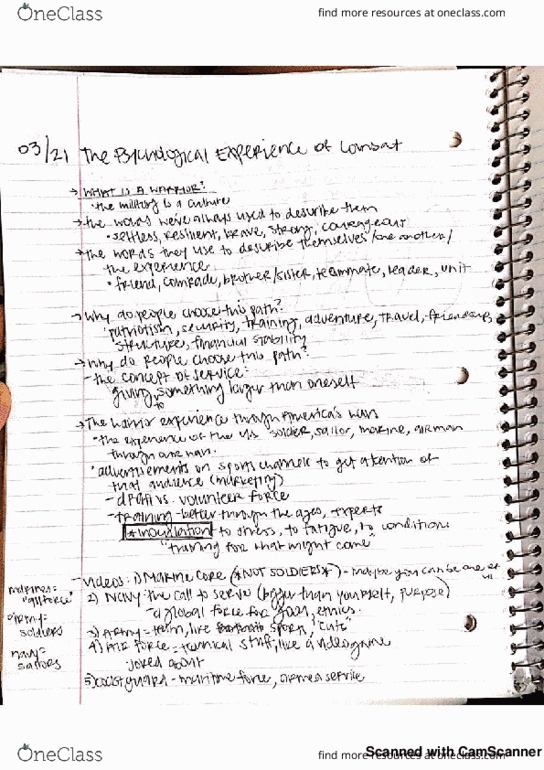 OneClass
find more resources at oneclass.com
03/21 The Psychological Experience of Combat
→ WHAT IS A WARRIOR?
• the military is a culture
→ the words we've always used to describe them
• selfless, resilient, brave, strong, courageous
→ the words they use to describe themselves/one another/
the experience
• friend, comrade, brother/sister, teammate, leader, unit
→ Why do people choose this path?
• patriotism, security, training, adventure, travel, friendships,
structure, financial stability
→ Why do people choose this path?
- the concept of service:
giving to something larger than oneself
→ The warrior experience through America's wars
- the experience of the U.S. soldier, sailor, marine, airman
through our wars.
• advertisements on sports channels to get attention of
that audience (marketing)
- draft vs. volunteer force
- training - better through the ages, experts
* inoculation to stress, to fatigue, to conditions
"training for what might come"
- videos: 1) Marine Core (*NOT SOLDIERS*) - maybe you can be one of us
marines= 2) Navy: the call to serve (bigger than yourself, purpose)
- a global force for good, ethics.
army= soldiers
3) Army - team, like sport, "cute"
navy= sailors
4) Air Force - technical stuff, like a videogame
joked about
5) coastguard - maritime force, armed service
OneClass
find more resources at oneclass.com
Scanned with CamScanner